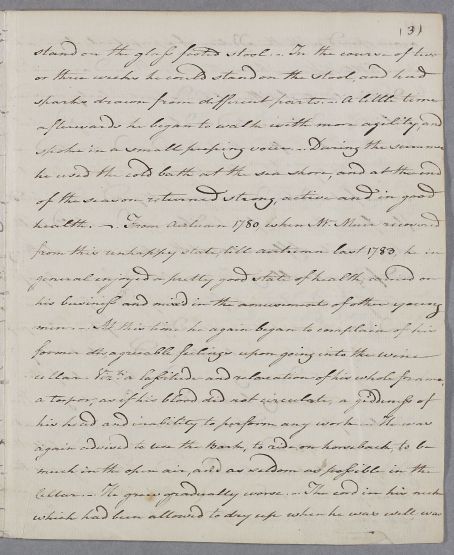 (3)
stand on the glass footed stool. — In the course of two
or three weeks he could stand on the stool, and had
sparks drawn from different parts. — A little time
afterwards he began to walk with more agility, and
spoke in a small peeping voice. — During the summer
he used the cold bath at the sea shore, and at the end
of the season returned strong, active and in good
health. — From Autumn 1780 when Mr. Muir recovered
from this unhappy state, till autumn last 1783, he in
general enjoyed a pretty good state of health, carried on
his business and mixed in the amusements of other young
men. — At this time he again began to complain of his
former disagreeable feelings upon going into the wine
cellar &c. a lassitude and relaxation of his whole frame,
a torpor, as if his blood did not circulate, a giddiness of
his head and inability to perform any work — He was
again advised to use the Bark, to ride on horseback, to be
much in the open air, and as seldom as possible in the
Cellar. — He grew gradually worse. — The cord in his neck
which had been allowed to dry up when he was well was